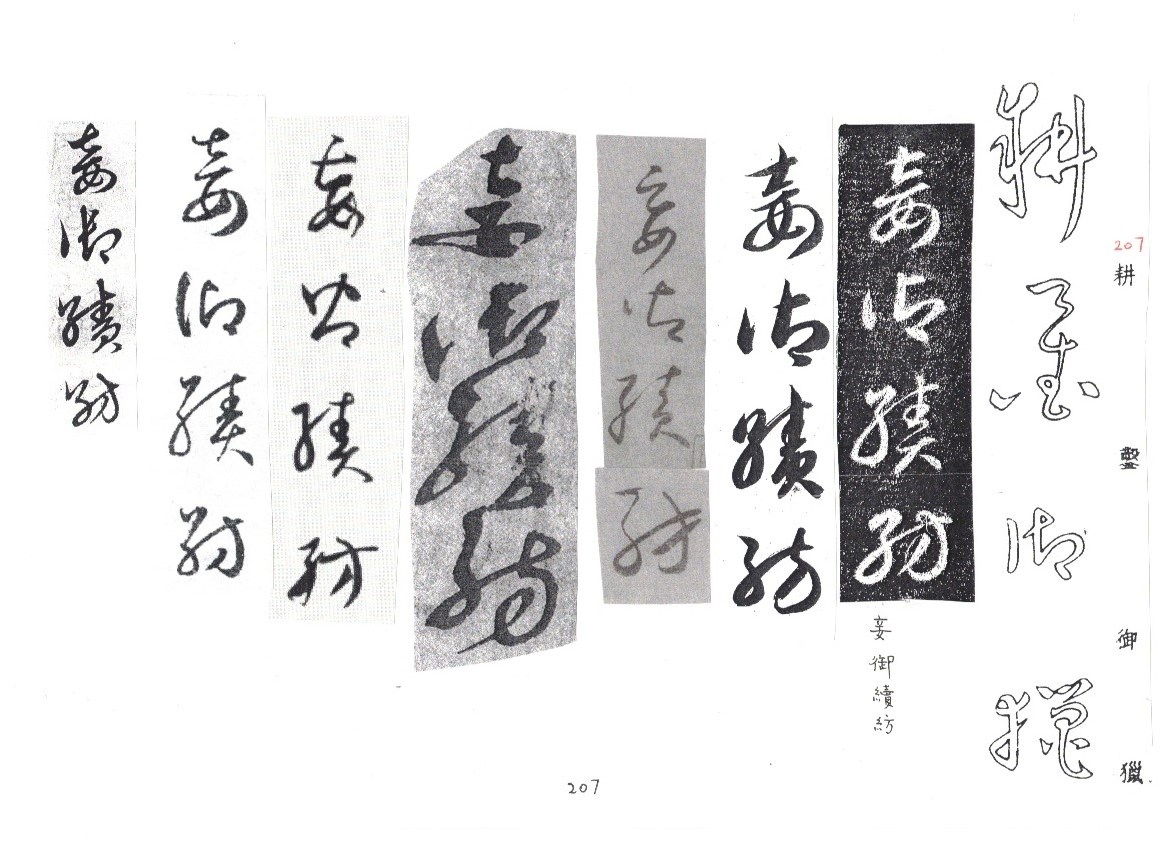 207
耕 鑿 御 獵
耕鑿御獵
妾御績紡
妾御續紡
妾御績紡
妾御績紡
妾御績紡
妾御績紡
妾御績紡
妾御績紡
207